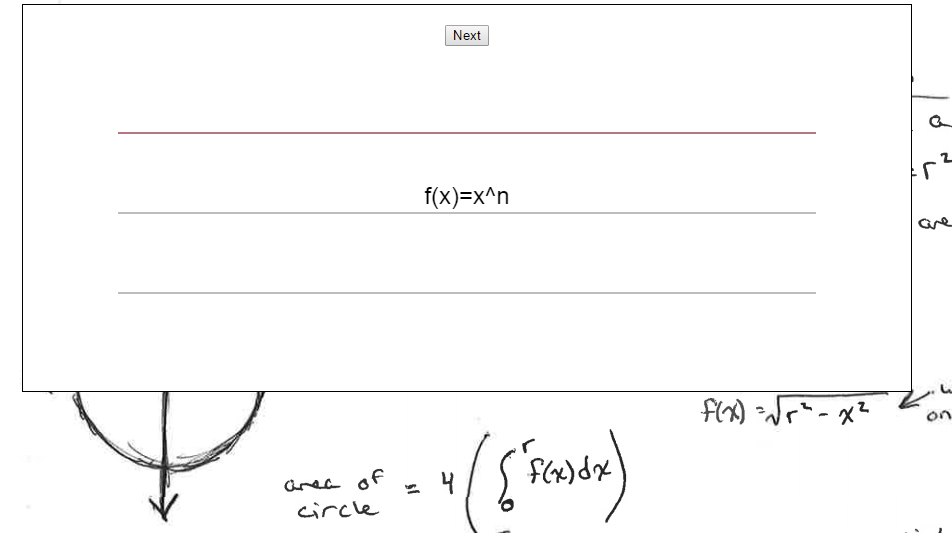 Next
a
= r²
are
f(x)=x^n
f(x) = √r² - x²
on
area of circle = 4 ( ∫₀ʳ f(x)dx )